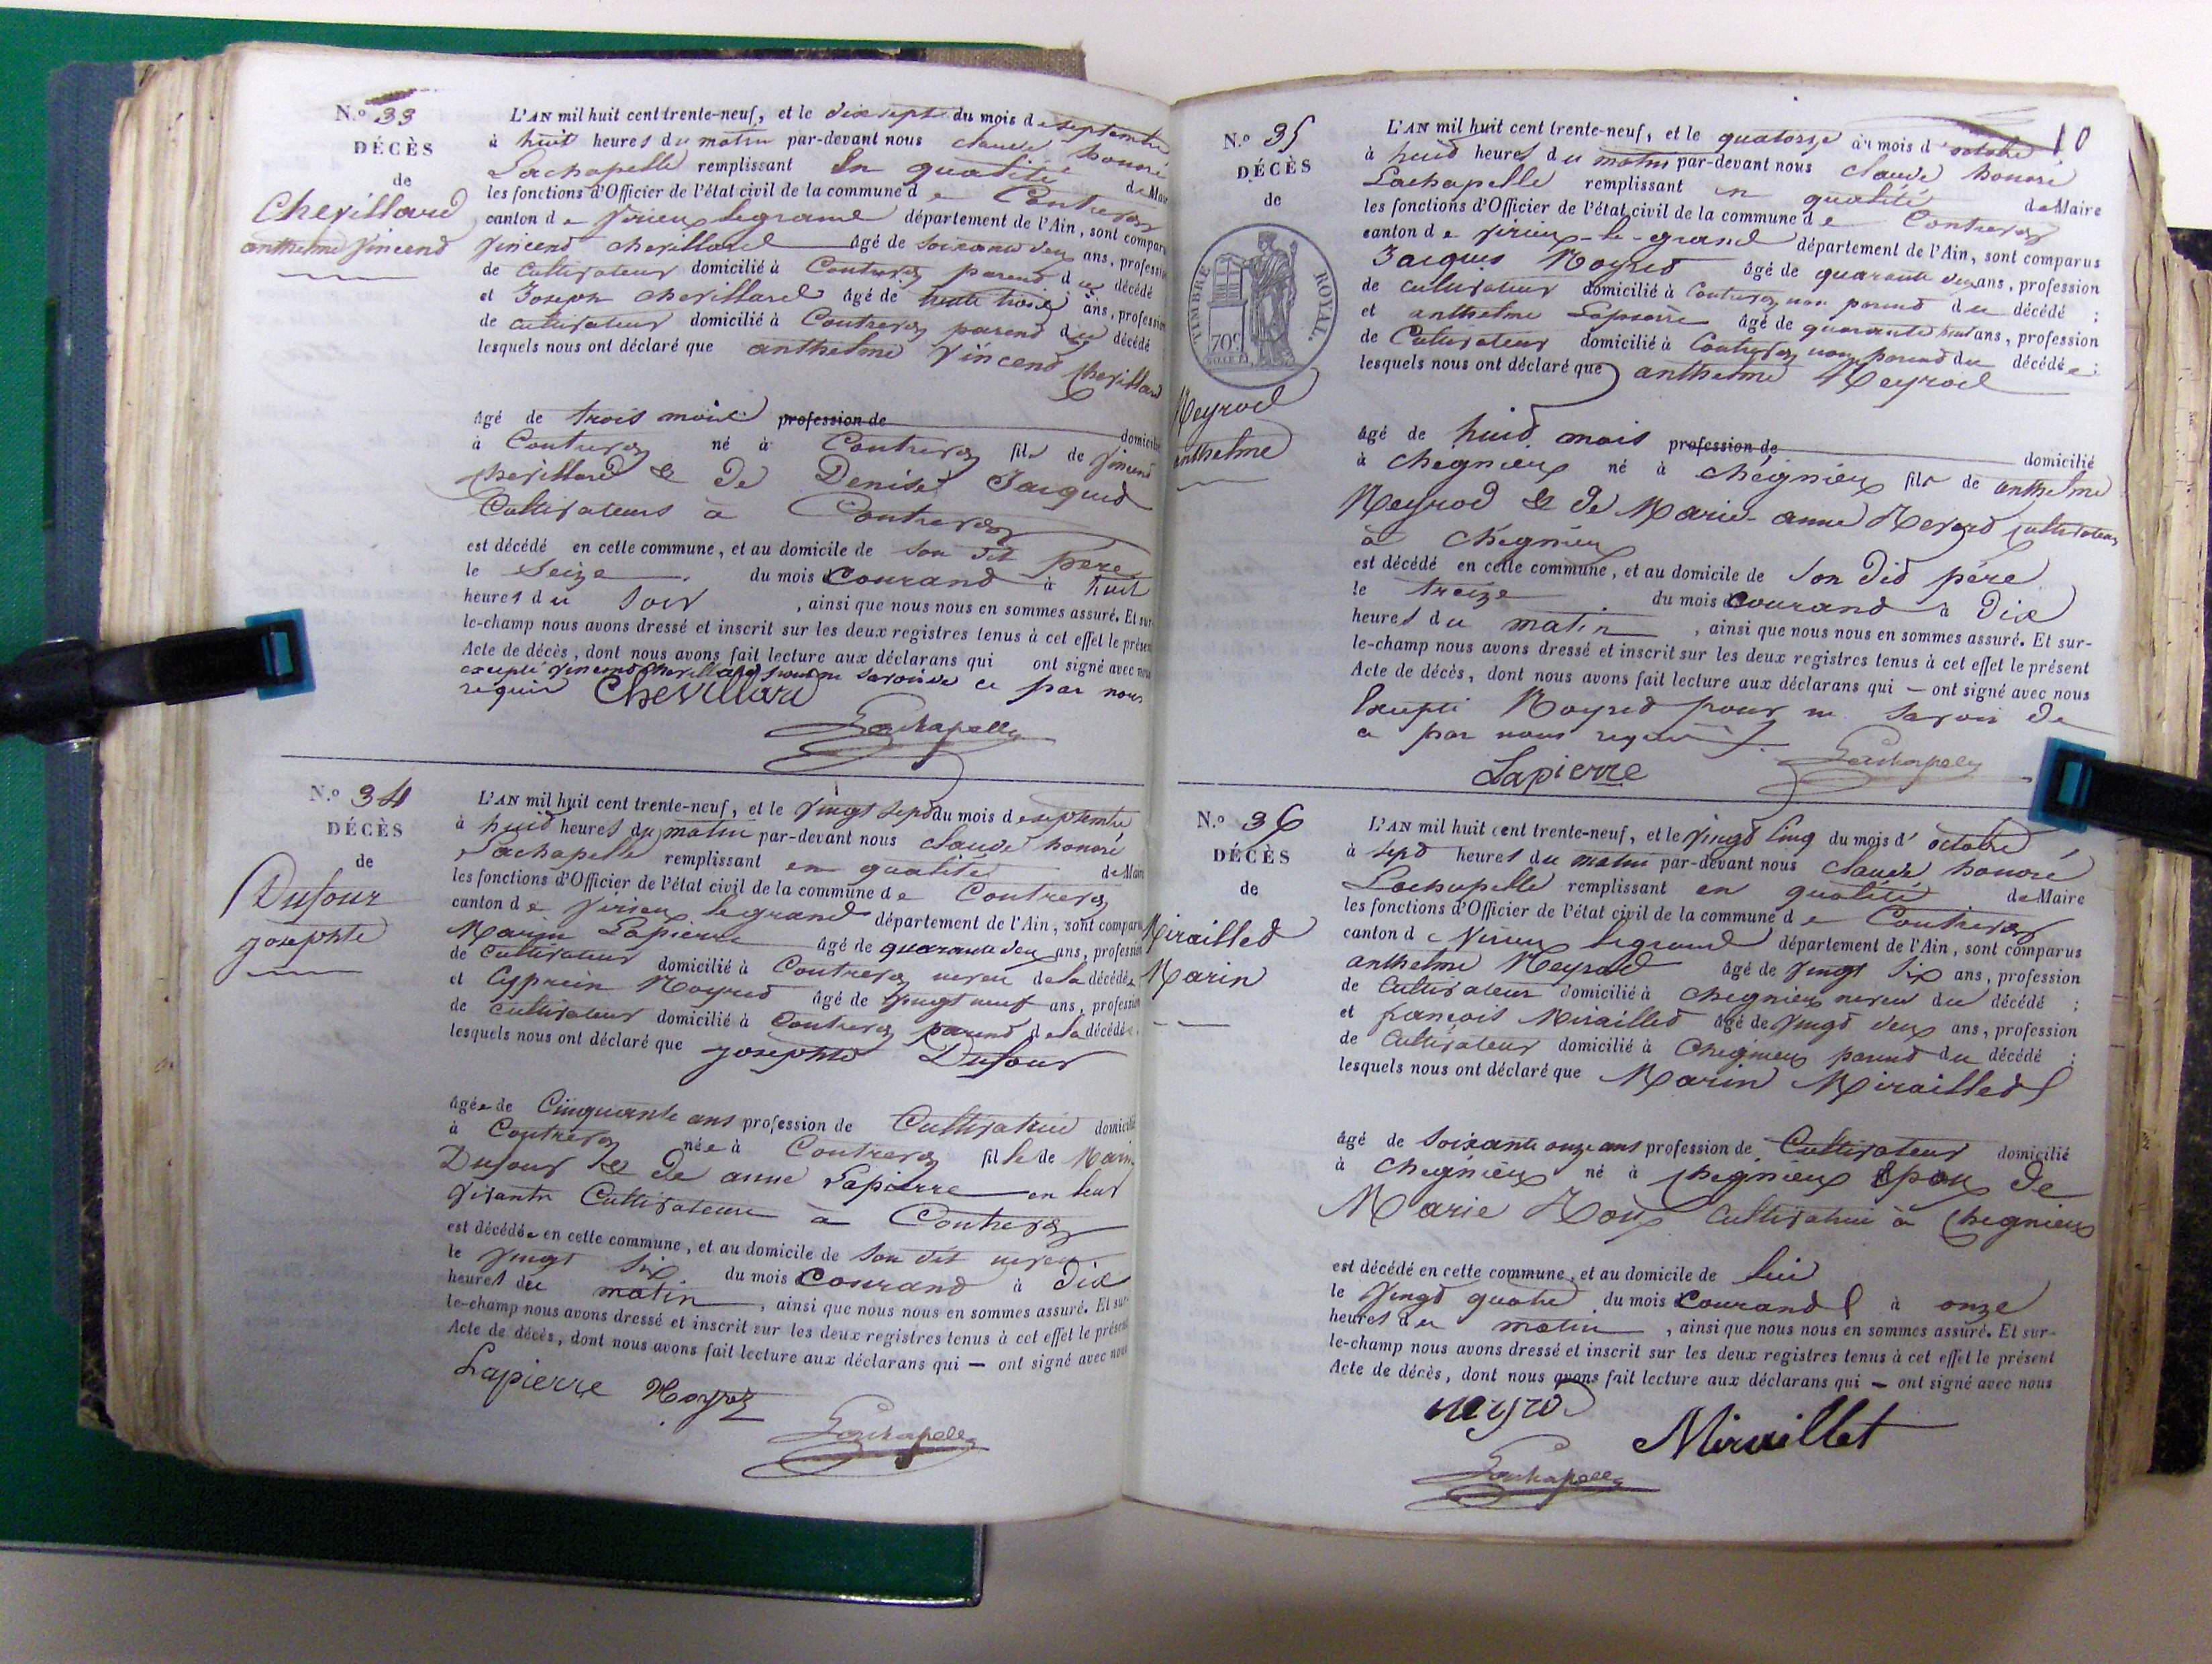 N.o 33
DÉCÈS
de
Chevillard
anthelme Vincend
L'AN mil huit cent trente-neuf, et le dix sept du mois de septembre
à huit heures du matin par-devant nous claude honoré
Lachapelle remplissant en qualité de Maire
les fonctions d'Officier de l'état civil de la commune de Contrevoz
canton de Virieu legrand département de l'Ain, sont comparus
Vincend chevillard âgé de soixante deux ans, profession
de cultivateur domicilié à Contrevoz parend du décédé
et Joseph chevillard âgé de trente trois ans, profession
de cultivateur domicilié à Contrevoz parend du décédé
lesquels nous ont déclaré que anthelme Vincend chevillard
âgé de trois mois profession de domicilié
à Contrevoz né à Contrevoz fils de Vincend
chevillard & de Denise Jacquid
Cultivateurs à Contrevoz
est décédé en cette commune, et au domicile de son dit père
le seize du mois courand à huit
heures du soir , ainsi que nous nous en sommes assuré. Et sur-
le-champ nous avons dressé et inscrit sur les deux registres tenus à cet effet le présent
Acte de décès, dont nous avons fait lecture aux déclarans qui ont signé avec nous
excepté Vincend chevillard pour ne savoir de ce par nous
requis Chevillard
Lachapelle
N.o 34
DÉCÈS
de
Dufour
josephte
L'AN mil huit cent trente-neuf, et le vingt sept du mois de septembre
à huid heures du matin par-devant nous claude honoré
Lachapelle remplissant en qualité de Maire
les fonctions d'Officier de l'état civil de la commune de Contrevoz
canton de Virieu legrand département de l'Ain, sont comparus
Marin Lapierre âgé de quarante deux ans, profession
de Cultivateur domicilié à Contrevoz neveu de la décédée
et Cyprien Moyred âgé de vingt neuf ans, profession
de cultivateur domicilié à Contrevoz parend de la décédée
lesquels nous ont déclaré que josephte Dufour
âgée de Cinquante ans profession de Cultivatrice domicilié
à Contrevoz née à Contrevoz fille de Marin
Dufour & de anne Lapierre en leur
vivants Cultivateurs à Contrevoz
est décédée en cette commune, et au domicile de son dit neveu
le vingt six du mois courand à dix
heures du matin , ainsi que nous nous en sommes assuré. Et sur-
le-champ nous avons dressé et inscrit sur les deux registres tenus à cet effet le présent
Acte de décès, dont nous avons fait lecture aux déclarans qui — ont signé avec nous
Lapierre
Lachapelle
10
N.o 35
DÉCÈS
de
TIMBRE ROYAL.
70c
Meyrod
anthelme
L'AN mil huit cent trente-neuf, et le quatorze du mois d'octobre
à huid heures du matin par-devant nous claude honoré
Lachapelle remplissant en qualité de Maire
les fonctions d'Officier de l'état civil de la commune de Contrevoz
canton de Virieu-le-grand département de l'Ain, sont comparus
Jacques Moyred âgé de quarante deux ans, profession
de cultivateur domicilié à Contrevoz non parend du décédé ;
et anthelme Lapierre âgé de quarante huit ans, profession
de Cultivateur domicilié à Contrevoz non parend du décédé ;
lesquels nous ont déclaré que anthelme Meyrod
âgé de huid mois profession de domicilié
à chégnieux né à chégnieux fils de anthelme
Meyrod & de Marie-anne cultivateurs
à chégnieux
est décédé en cette commune, et au domicile de son did père
le treize du mois courand à dix
heures du matin , ainsi que nous nous en sommes assuré. Et sur-
le-champ nous avons dressé et inscrit sur les deux registres tenus à cet effet le présent
Acte de décès, dont nous avons fait lecture aux déclarans qui — ont signé avec nous
Excepté Moyred pour ne savoir de
ce par nous requis
Lapierre Lachapelle
N.o 36
DÉCÈS
de
Mirailled
Marin
L'AN mil huit cent trente-neuf, et le vingd cinq du mois d'octobre
à sepd heures du matin par-devant nous claude honoré
Lachapelle remplissant en qualité de Maire
les fonctions d'Officier de l'état civil de la commune de Contrevoz
canton de Virieu legrand département de l'Ain, sont comparus
anthelme Meyrod âgé de vingt six ans, profession
de Cultivateur domicilié à chegnieux neveu du décédé ;
et françois Mirailled âgé de vingd deux ans, profession
de Cultivateur domicilié à Chegnieux parend du décédé ;
lesquels nous ont déclaré que Marin Mirailled
âgé de soixante onze ans profession de Cultivateur domicilié
à chegnieux né à chegnieux Epoux de
Marie Roux cultivatrice à Chegnieux
est décédé en cette commune, et au domicile de lui
le vingd quatre du mois courand à onze
heures du matin , ainsi que nous nous en sommes assuré. Et sur-
le-champ nous avons dressé et inscrit sur les deux registres tenus à cet effet le présent
Acte de décès, dont nous avons fait lecture aux déclarans qui — ont signé avec nous
meyrod Miraillet
Lachapelle